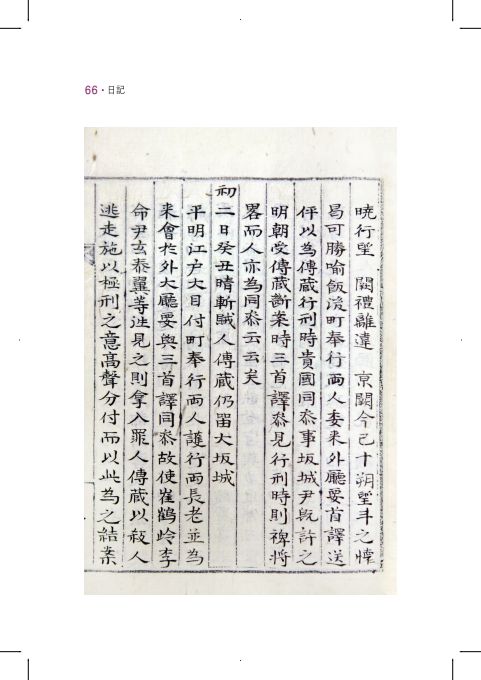 66 · 日記
曉行望 闕禮離違 京闕今已十朔望斗之悰
曷可勝喻飯後町奉行兩人委来外廳要首譯送
伻以為傳蔵行刑時貴國同叅事坂城尹旣許之
明朝受傳蔵斷案時三首譯叅見行刑時則裨將
畧而人亦為同叅云云矣
初二日癸丑晴斬賊人傳蔵仍留大坂城
平明江户大目付町奉行兩人護行兩長老並為
来會於外大廳要與三首譯同叅故使崔鶴岺李
命尹玄泰翼等進見之則拿入罪人傳蔵以殺人
逃走施以極刑之意高聲分付而以此為之結案